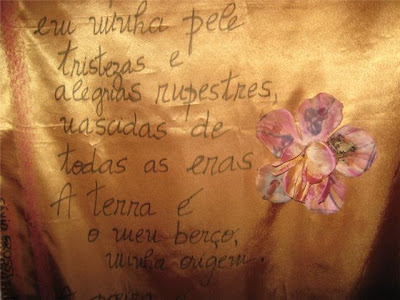 em minha pele
tristezas e
alegrias rupestres,
nascidas de
todas as eras.
A terra é
o meu berço,
minha origem.